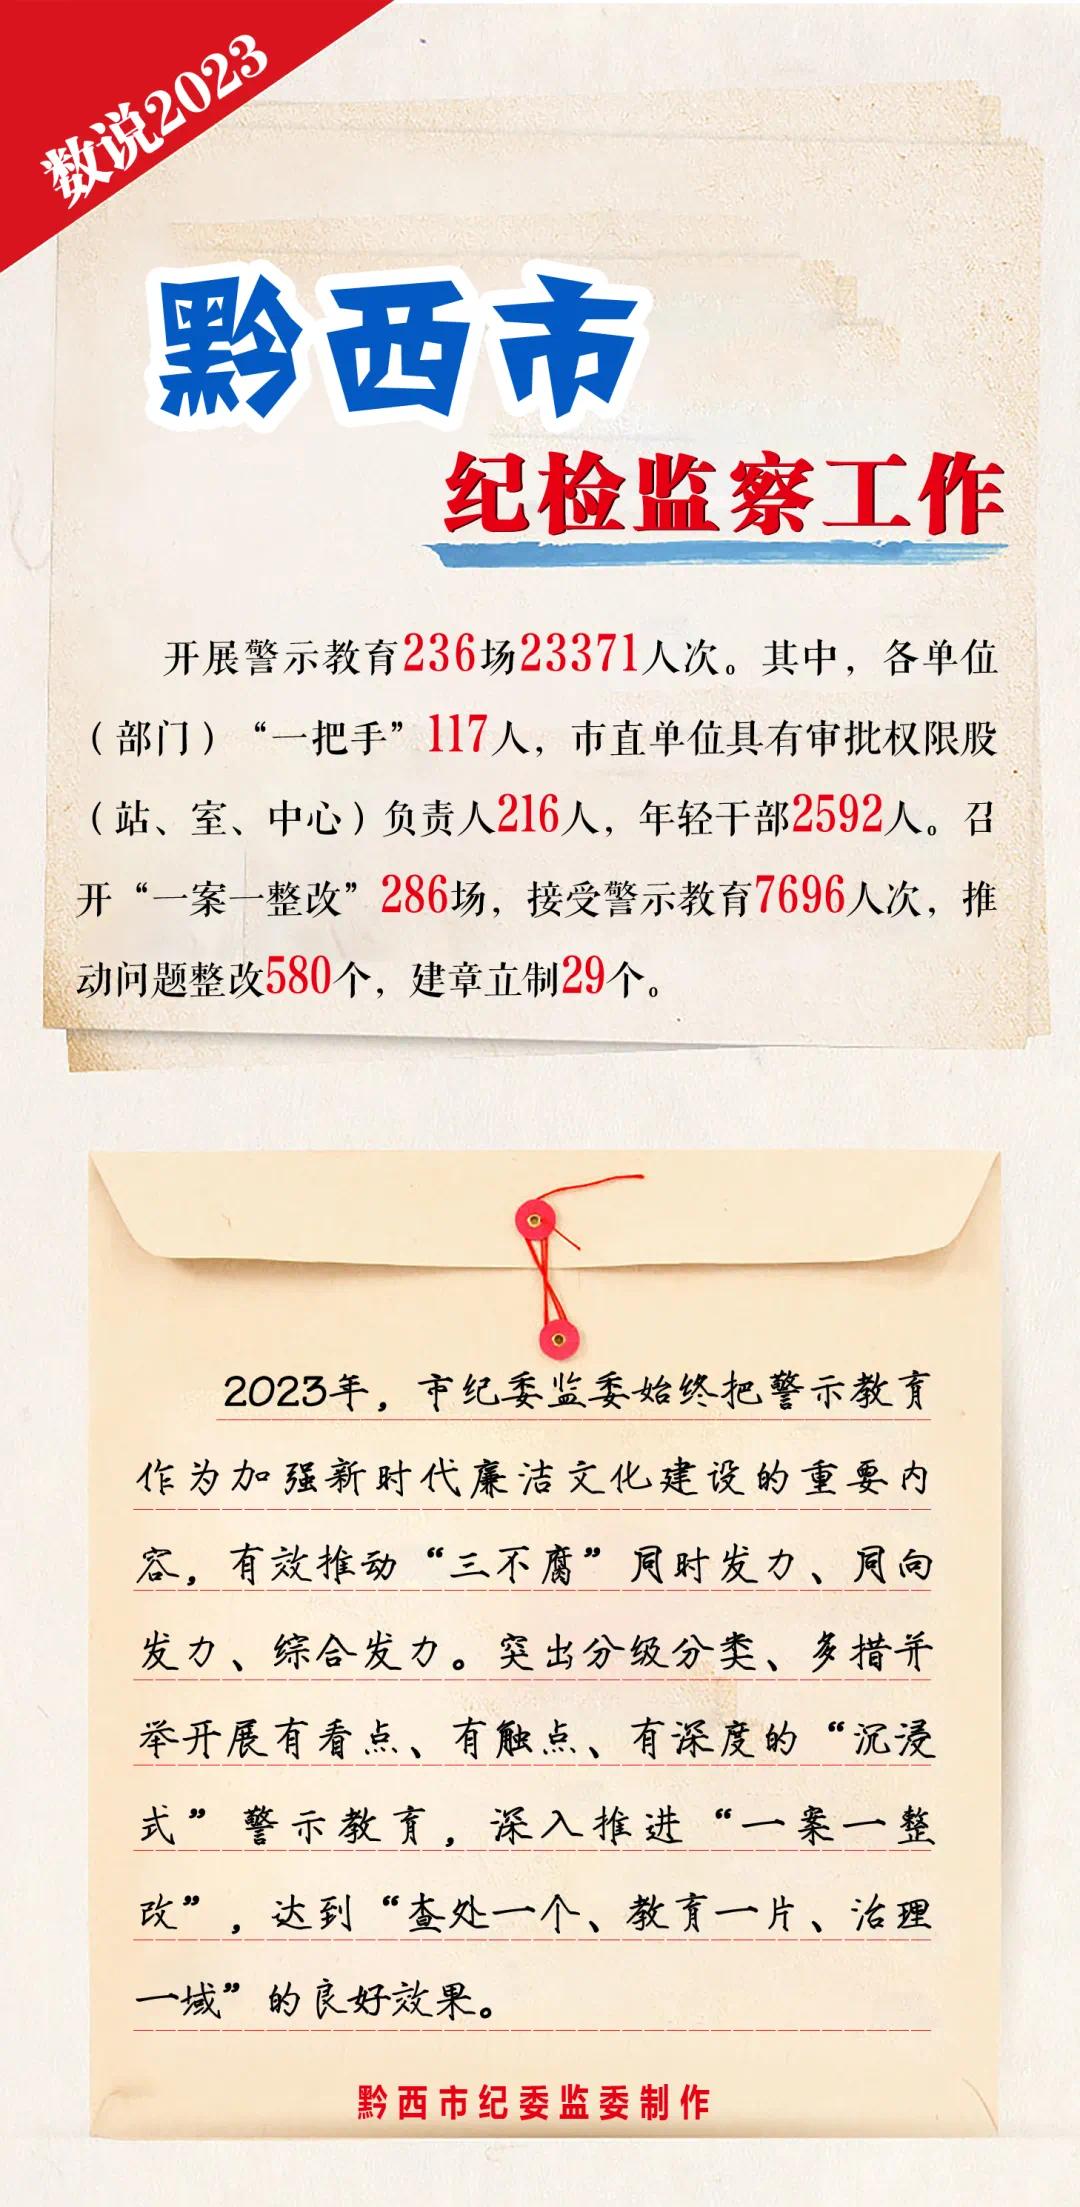 数说2023
黔西市
纪检监察工作
开展警示教育236场23371人次。其中，各单位
（部门）“一把手”117人，市直单位具有审批权限股
（站、室、中心）负责人216人，年轻干部2592人。召
开“一案一整改”286场，接受警示教育7696人次，推
动问题整改580个，建章立制29个。
2023年，市纪委监委始终把警示教育
作为加强新时代廉洁文化建设的重要内
容，有效推动“三不腐”同时发力、同向
发力、综合发力。突出分级分类、多措并
举开展有看点、有触点、有深度的“沉浸
式”警示教育，深入推进“一案一整
改”，达到“查处一个、教育一片、治理
一域”的良好效果。
黔西市纪委监委制作